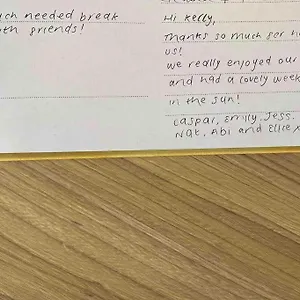 ch needed break
th friends!
Hi Kelly,
Thanks so much for h
us!
we really enjoyed our
and had a lovely week
in the sun!
Caspar, Emily, Jess.
Nat, Abi and Ellie x